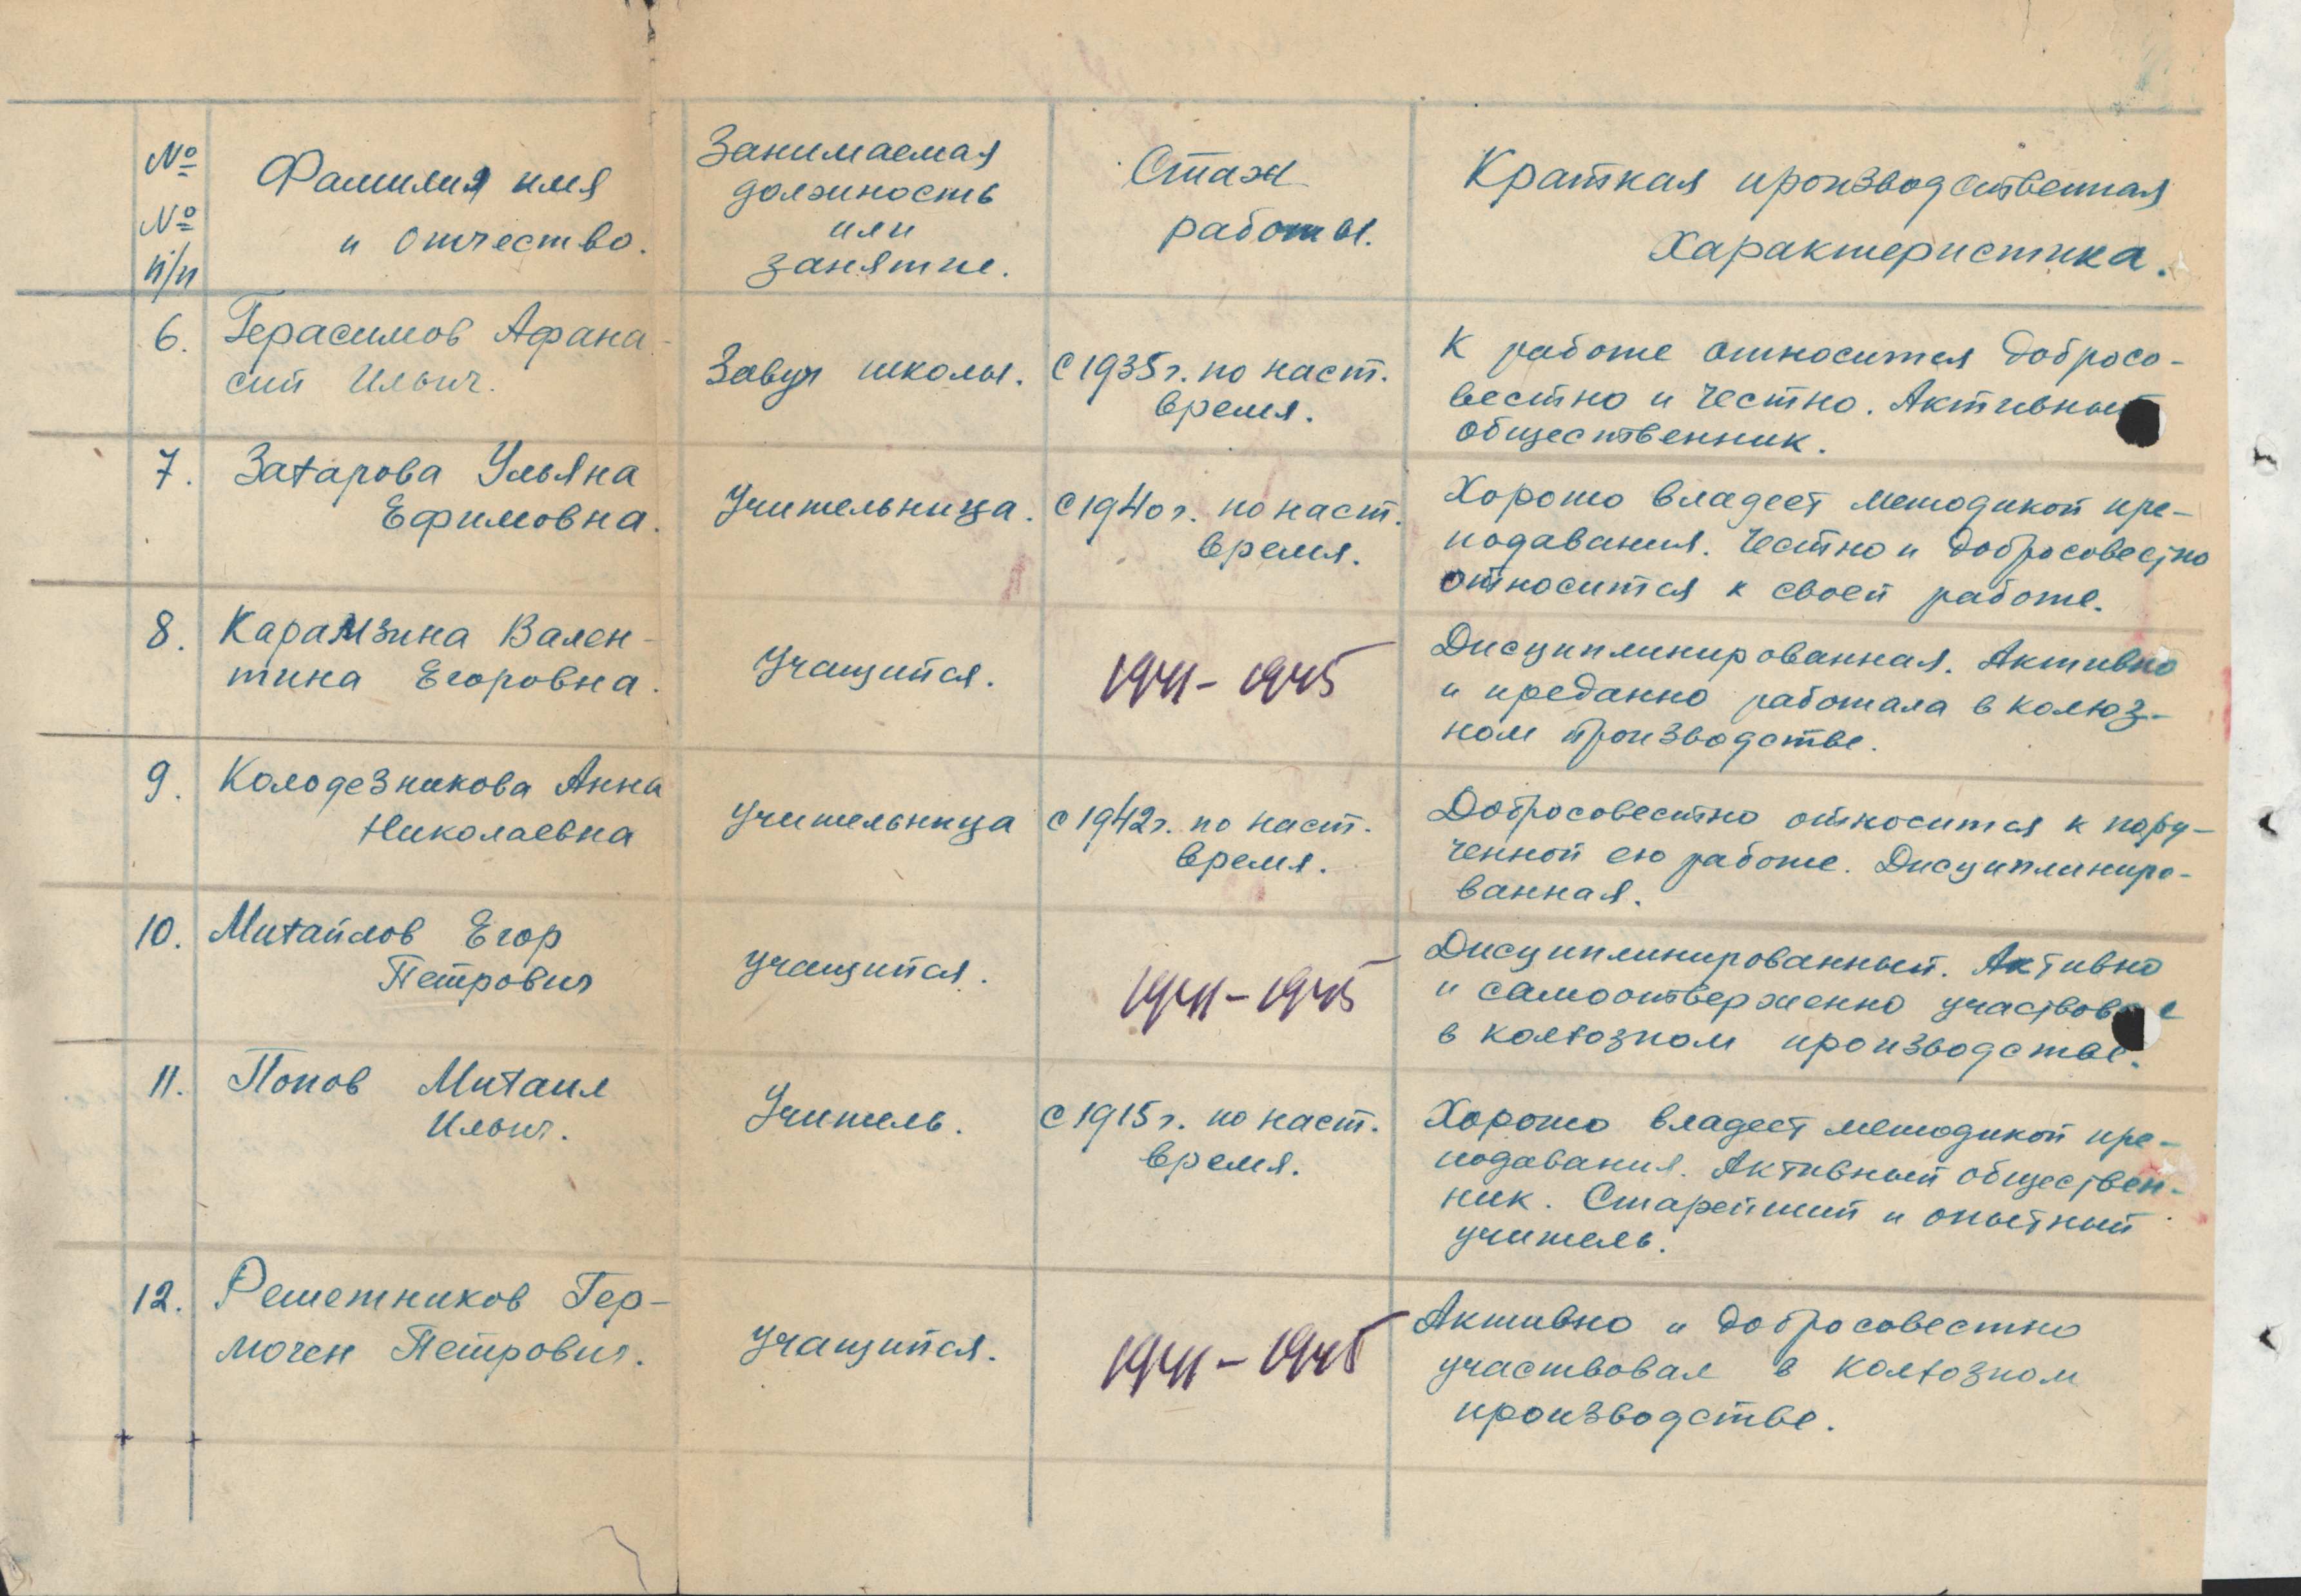 №
№
п/п
Фамилия имя
и отчество.
Занимаемая
должность
или
занятие.
Стаж
работы.
Краткая производственная
характеристика.
6.
Герасимов Афана-
сий Ильич.
Завуч школы.
с 1935 г. по наст.
время.
К работе относится добросо-
вестно и честно. Активный
общественник.
7.
Захарова Ульяна
Ефимовна.
Учительница.
с 1940 г. по наст.
время.
Хорошо владеет методикой пре-
подавания. Честно и добросовестно
относится к своей работе.
8.
Карамзина Вален-
тина Егоровна.
Учащийся.
1941-1945
Дисциплинированная. Активно
и преданно работала в колхоз-
ном производстве.
9.
Колодезникова Анна
Николаевна
Учительница
с 1942 г. по наст.
время.
Добросовестно относится к пору-
ченной ею работе. Дисциплиниро-
ванная.
10.
Михайлов Егор
Петрович
Учащийся.
1941-1945
Дисциплинированный. Активно
и самоотверженно участвовал
в колхозном производстве.
11.
Попов Михаил
Ильич.
Учитель.
с 1915 г. по наст.
время.
Хорошо владеет методикой пре-
подавания. Активный обществен-
ник. Старейший и опытный
учитель.
12.
Решетников Гер-
моген Петрович.
Учащийся.
1941-1945
Активно и добросовестно
участвовал в колхозном
производстве.